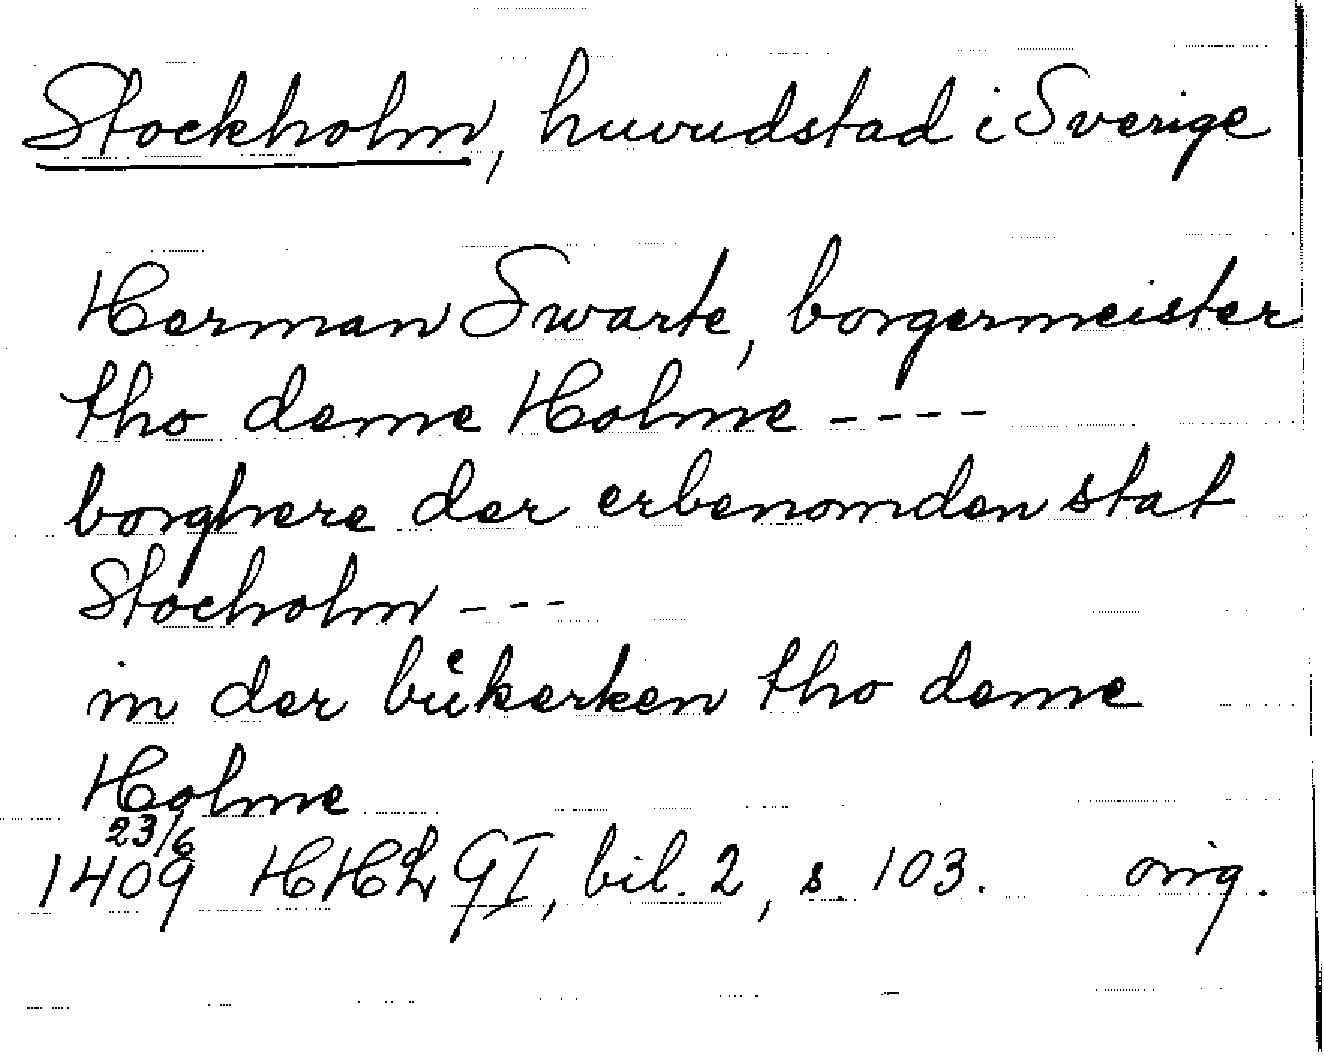 Stockholm, huvudstad i Sverige
Herman Swarte, borgermeister
tho deme Holme ----
borghere der erbenomden stat
Stocholm ---
in der buͤkerken tho deme
Holme
23/6
1409 HHLGI, bil. 2, s. 103. orig.